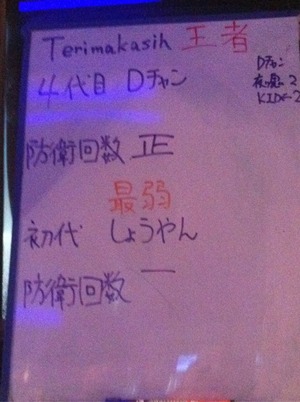 Terimakasih 王者
4代目 Dチャン
防衛回数 正
最弱
初代 しょうやん
防衛回数 一
Dチャン
KID-2